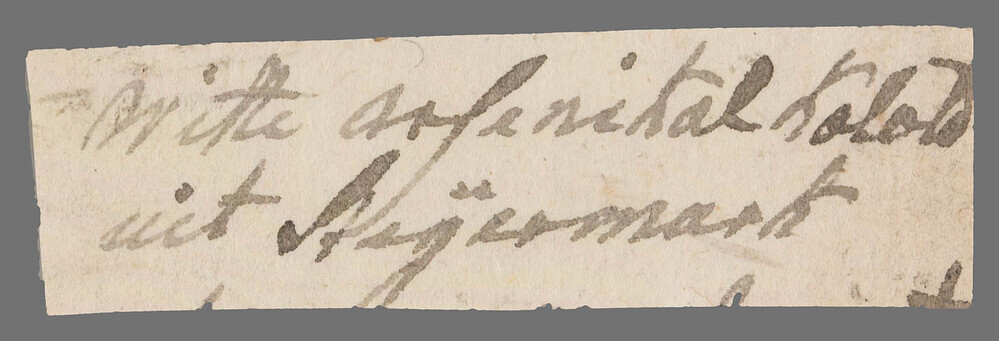 Witte arsenikal kobold
uit Steÿermark